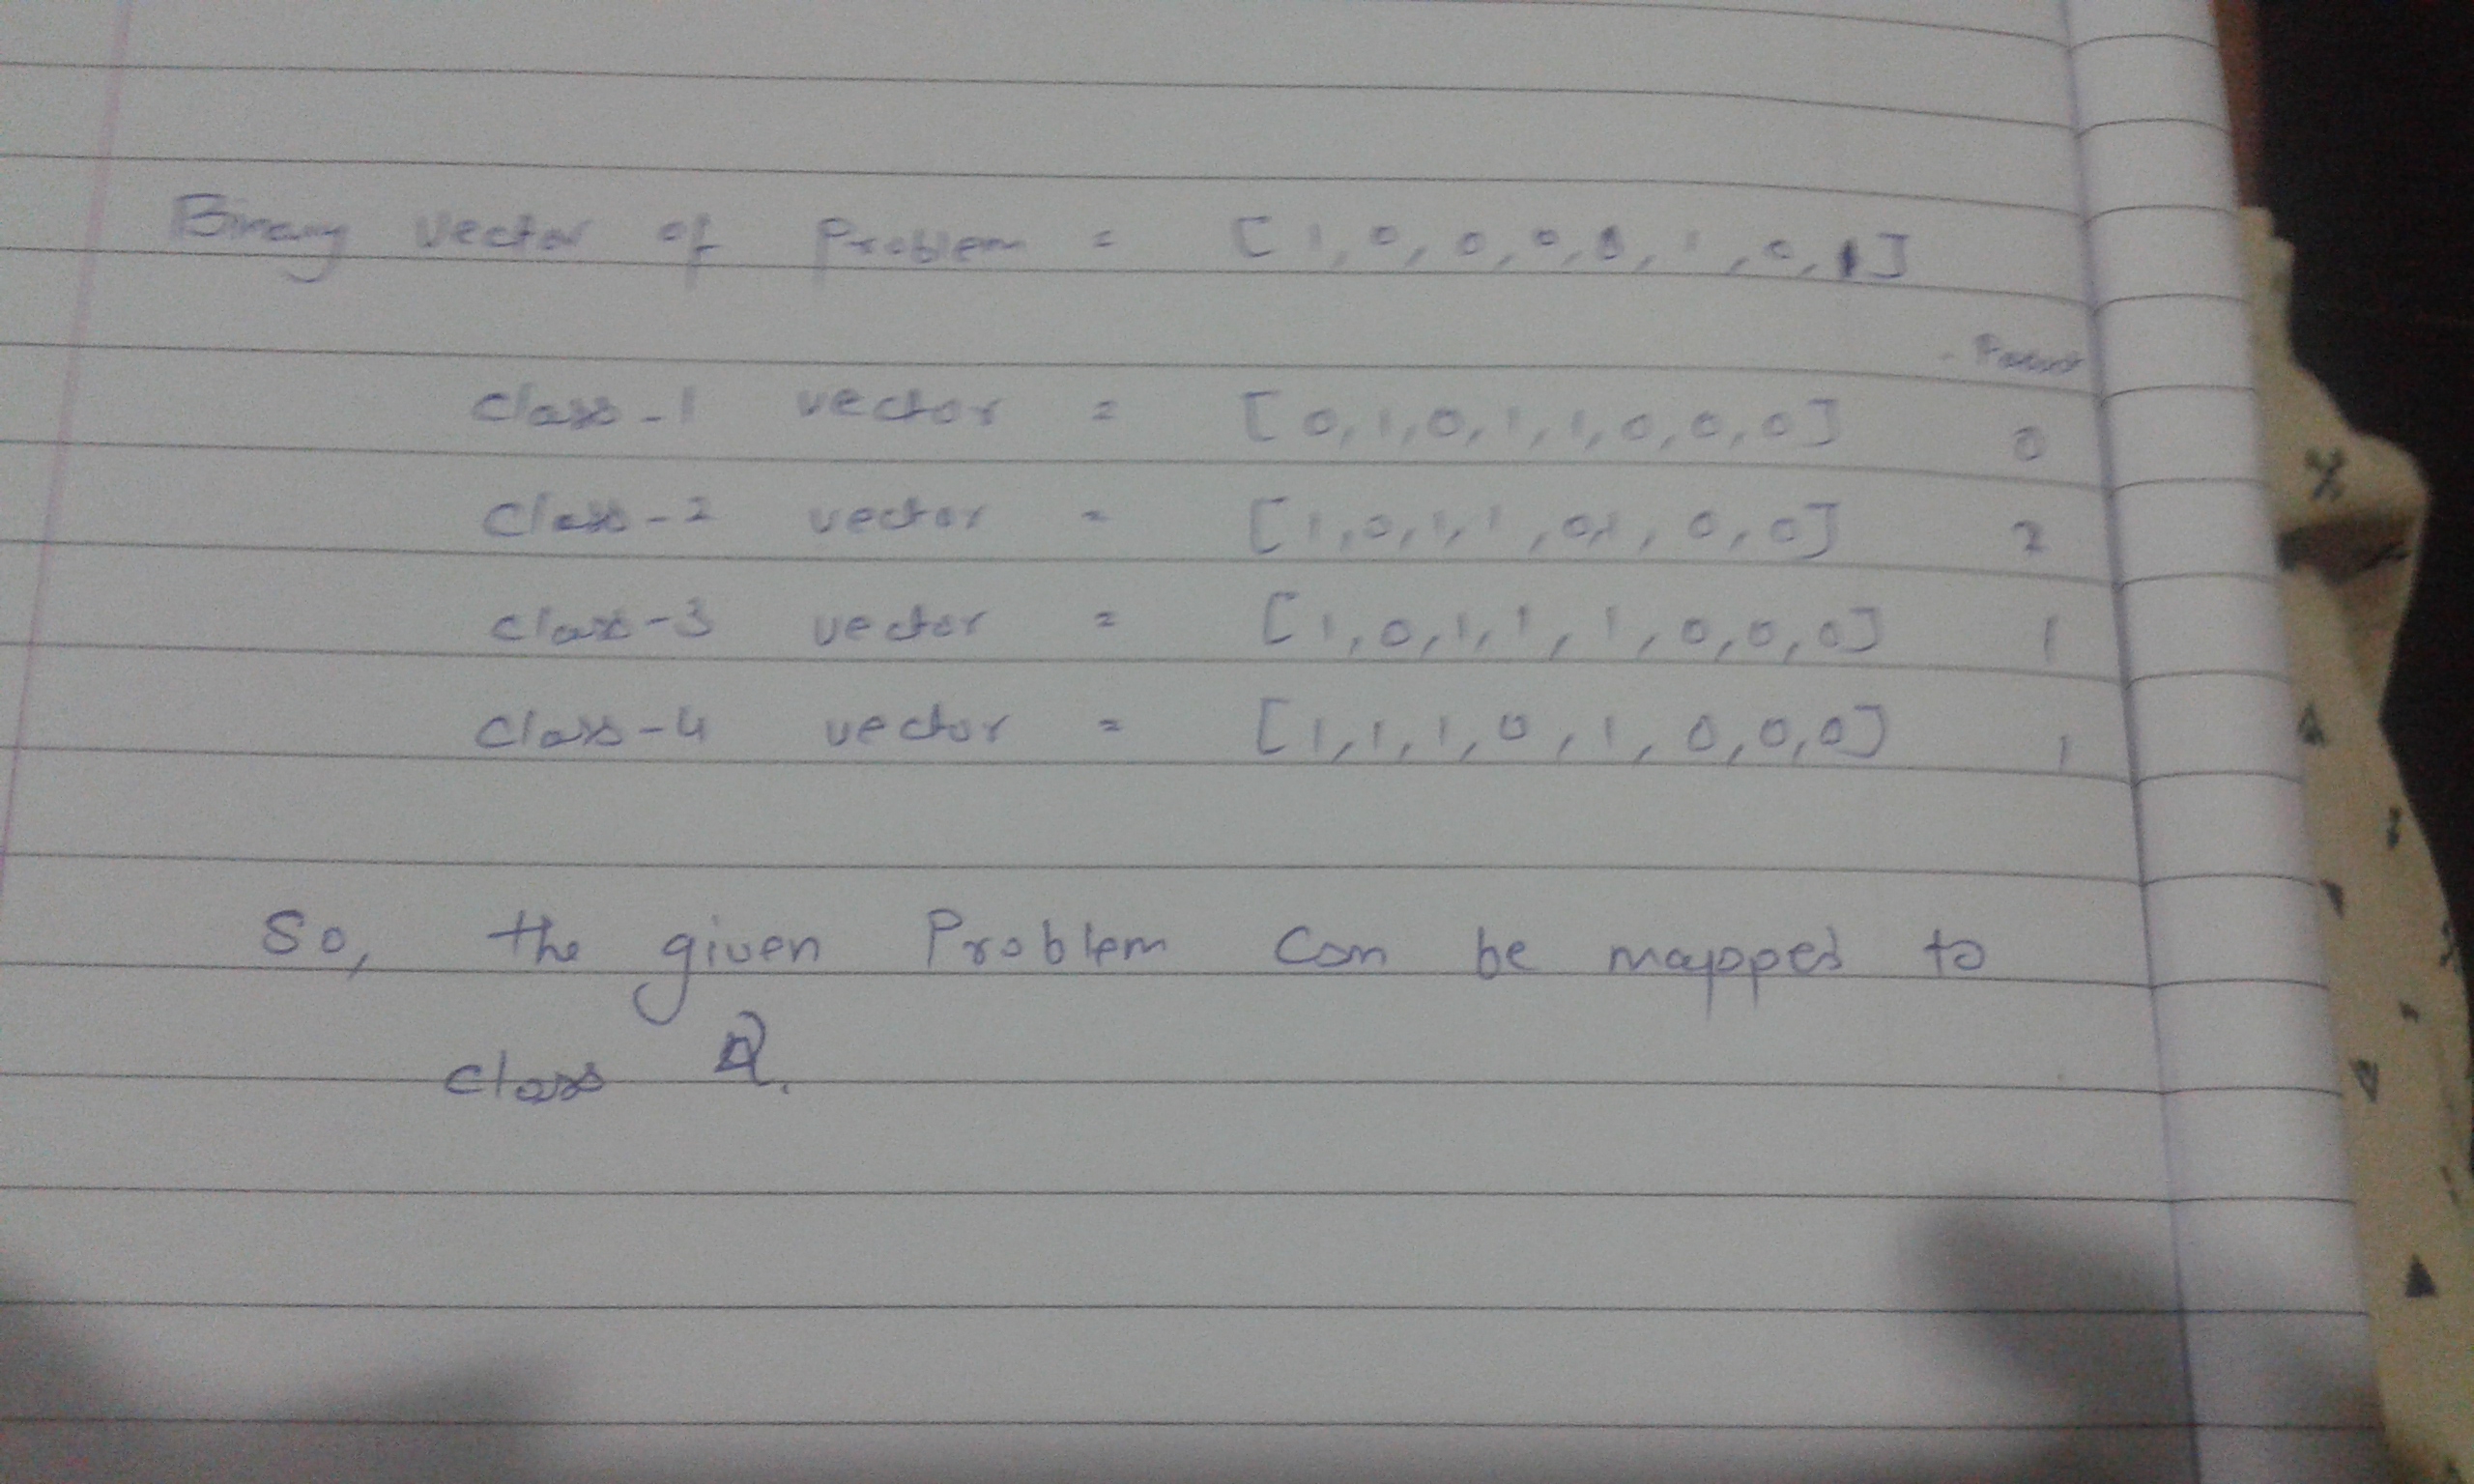 Binary vector of Problem = [1,0,0,0,0,1,0,1]
class-1 vector = [0,1,0,1,1,0,0,0] 0
class-2 vector = [1,0,1,1,0,1,0,0] 2
class-3 vector = [1,0,1,1,1,0,0,0] 1
class-4 vector = [1,1,1,0,1,0,0,0] 1
So, the given Problem can be mapped to
class 2.